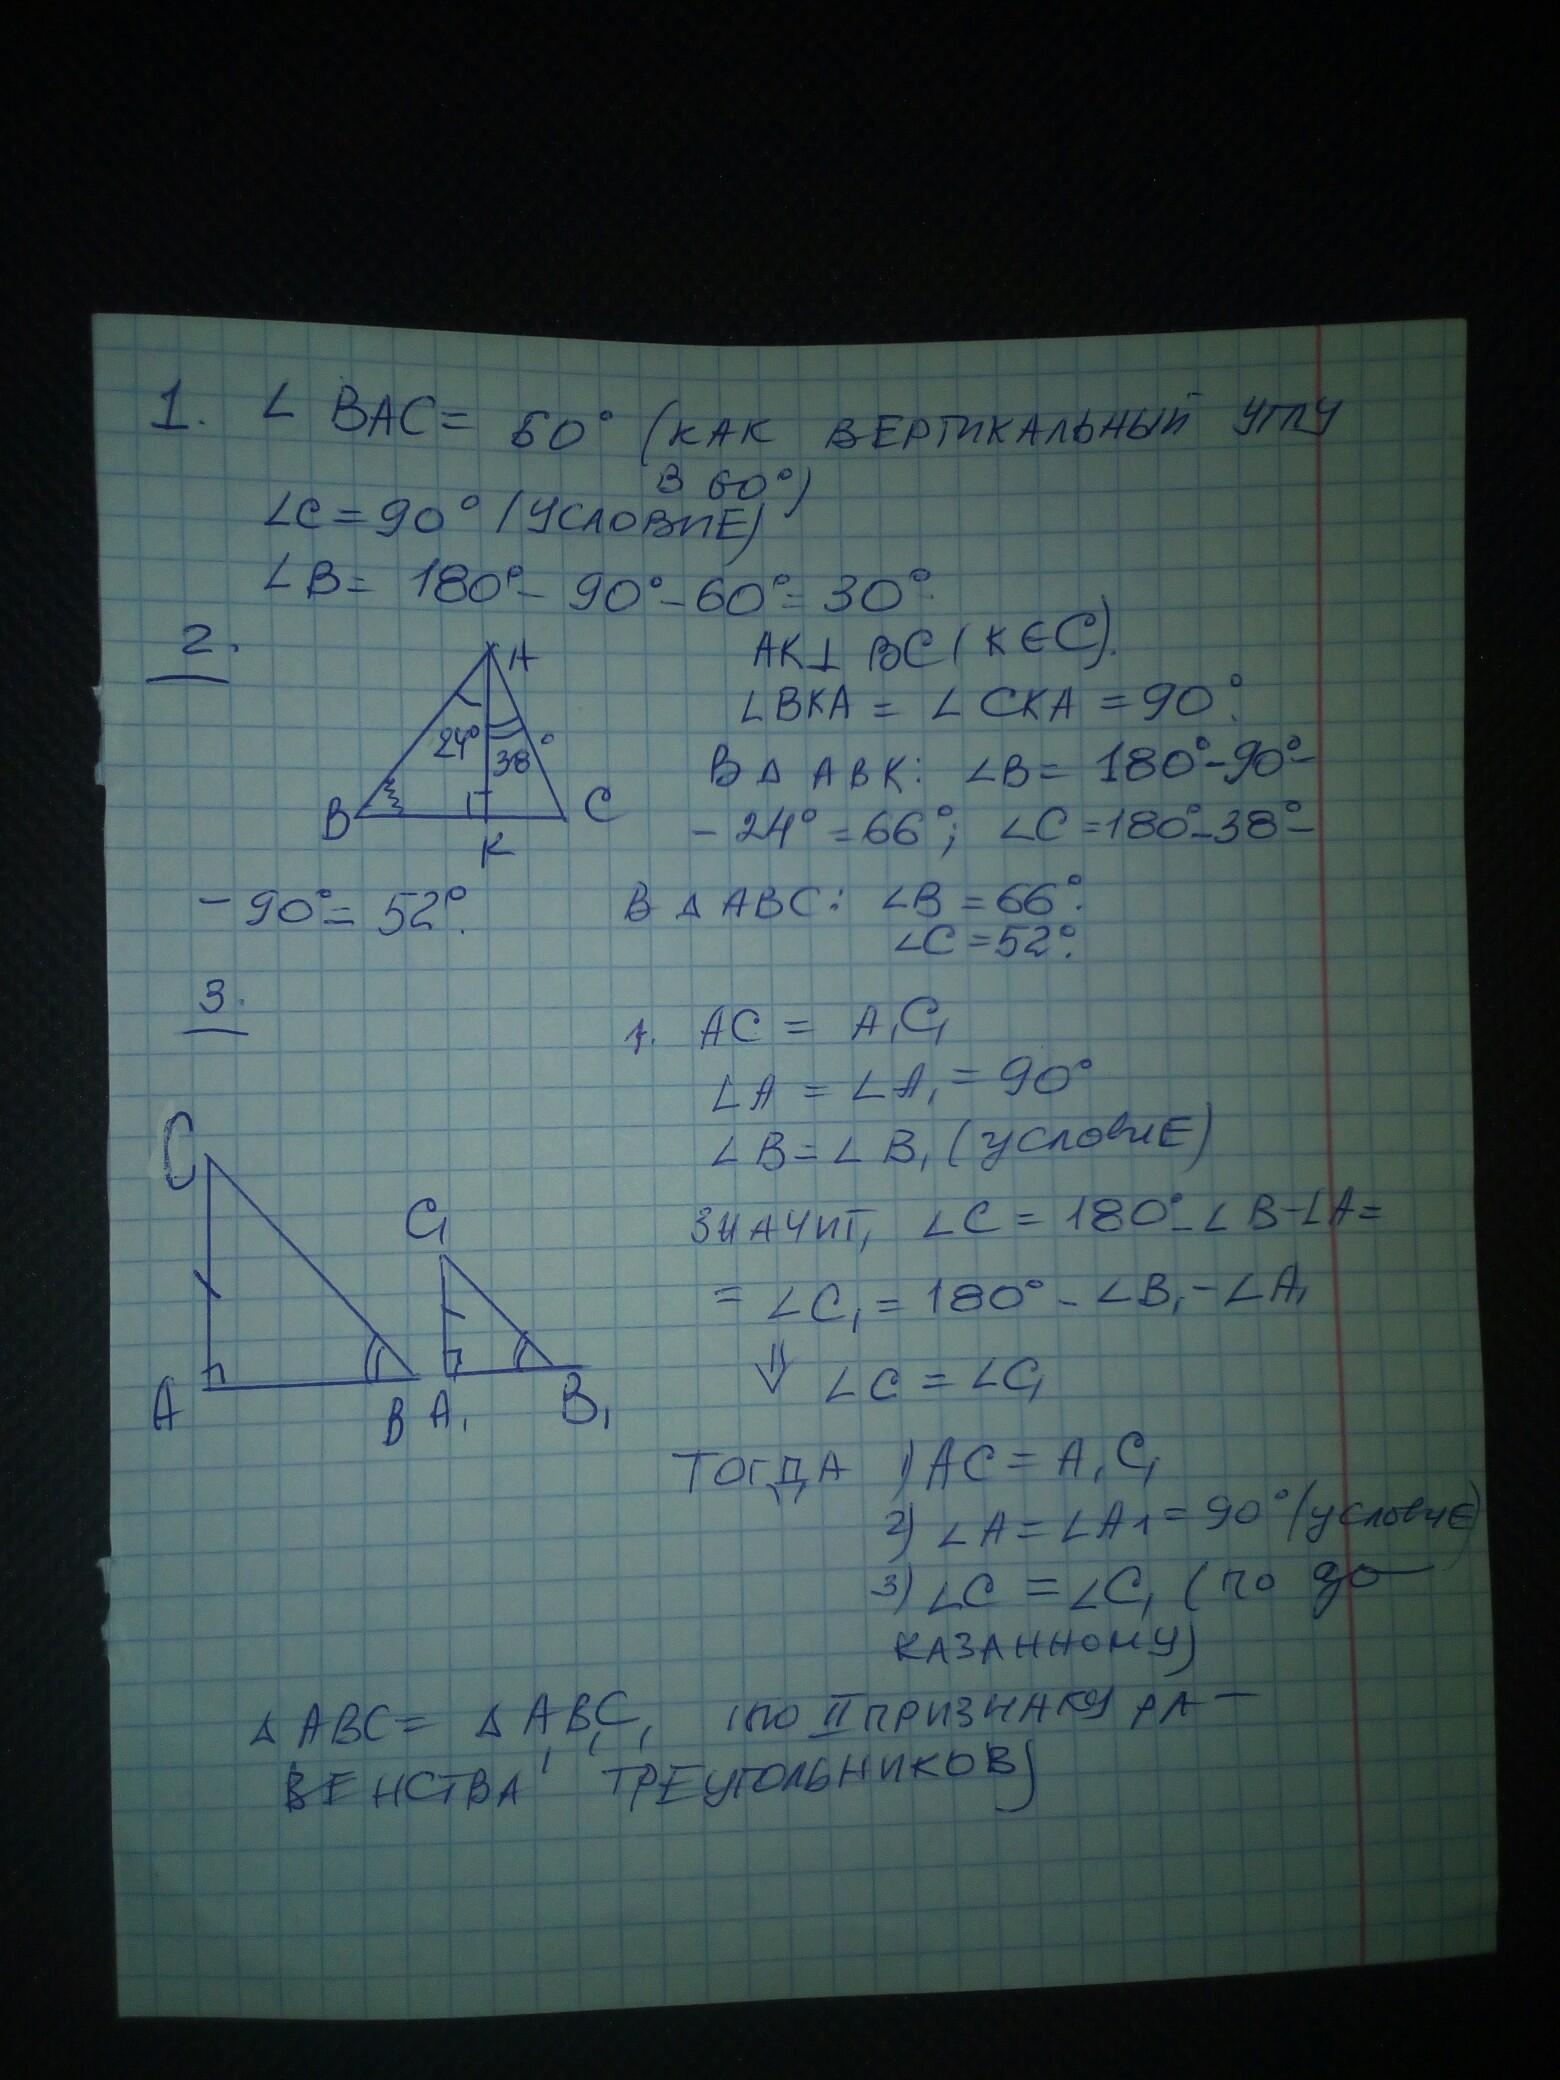 1. ∠ BAC = 60° (КАК ВЕРТИКАЛЬНЫЙ УГЛУ
В 60°)
∠C = 90° (УСЛОВИЕ)
∠B = 180° - 90° - 60° = 30°.
2.
A
24°
38°
B
K
C
AK⊥ BC (K ∈ C).
∠BKA = ∠ CKA = 90°.
В Δ ABK: ∠B = 180° - 90° -
- 24° = 66°; ∠C = 180° - 38° -
- 90° = 52°.
В Δ ABC: ∠B = 66°.
∠C = 52°.
3.
1. AC = A₁C₁
∠A = ∠A₁ = 90°
∠B = ∠B₁ (УСЛОВИЕ)
C
A
B
C₁
A₁
B₁
ЗНАЧИТ, ∠C = 180° - ∠B - ∠A =
= ∠C₁ = 180° - ∠B₁ - ∠A₁
⇓ ∠C = ∠C₁
ТОГДА 1) AC = A₁C₁
2) ∠A = ∠A1 = 90° (УСЛОВИЕ)
3) ∠C = ∠C₁ (ПО ДО-
КАЗАННОМУ)
Δ ABC = Δ A₁B₁C₁ (ПО II ПРИЗНАКУ РА-
ВЕНСТВА ТРЕУГОЛЬНИКОВ)